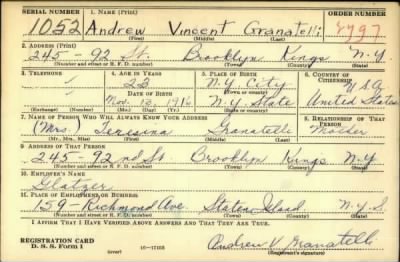 SERIAL NUMBER 1. NAME (Print) ORDER NUMBER
1052 Andrew Vincent Granatelli
(First) (Middle) (Last)
2. ADDRESS (Print)
245 - 92 St. Brooklyn Kings N.Y.
(Number and street or R. F. D. number) (Town) (County) (State)
3. TELEPHONE 4. AGE IN YEARS 5. PLACE OF BIRTH 6. COUNTRY OF CITIZENSHIP
23 N.Y. City U.S.A.
DATE OF BIRTH (Town or county)
Nov. 13, 1916 N.Y. State United States
(Exchange) (Number) (Mo.) (Day) (Yr.) (State or country)
7. NAME OF PERSON WHO WILL ALWAYS KNOW YOUR ADDRESS 8. RELATIONSHIP OF THAT PERSON
(Mrs.) Teresina Granatelli Mother
(Mr., Mrs., Miss) (First) (Middle) (Last)
9. ADDRESS OF THAT PERSON
245 - 92nd St Brooklyn Kings N.Y
(Number and street or R. F. D. number) (Town) (County) (State)
10. EMPLOYER'S NAME
Glatzer
11. PLACE OF EMPLOYMENT OR BUSINESS
159 - Richmond Ave. Staten Island. N.Y.S.
(Number and street or R. F. D. number) (Town) (County) (State)
I AFFIRM THAT I HAVE VERIFIED ABOVE ANSWERS AND THAT THEY ARE TRUE.
REGISTRATION CARD
D. S. S. Form 1 (over) Andrew V. Granatelli